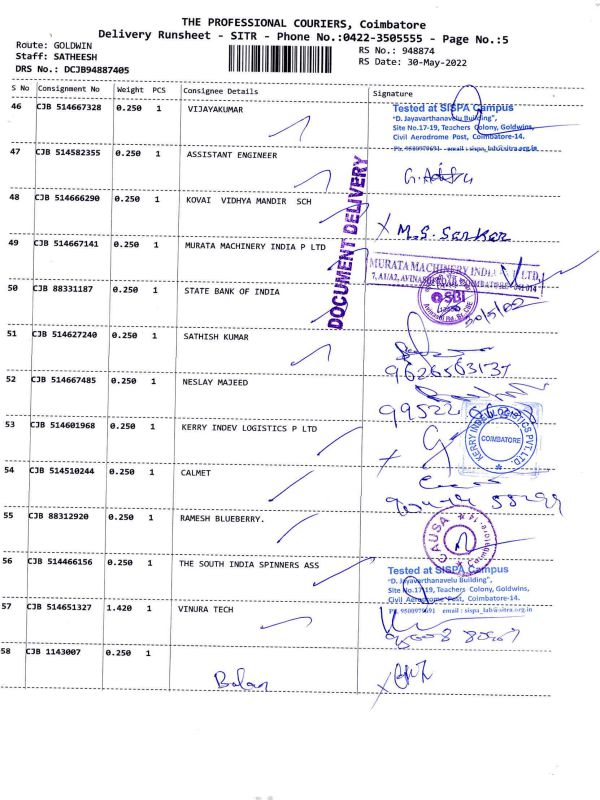 THE PROFESSIONAL COURIERS, Coimbatore
Delivery Runsheet - SITR - Phone No.:0422-3505555 - Page No.:5
Route: GOLDWIN
RS No.: 948874
Staff: SATHEESH
RS Date: 30-May-2022
DRS No.: DCJB94887405
S No Consignment No Weight PCS Consignee Details Signature
46 CJB 514667328 0.250 1 VIJAYAKUMAR
Tested at SISPA Campus
"D. Jayavarthanavelu Building",
Site No.17-19, Teachers Colony, Goldwins,
Civil Aerodrome Post, Coimbatore-14.
Ph. 9500979691 email : sispa_lab@sitra.org.in
47 CJB 514582355 0.250 1 ASSISTANT ENGINEER
48 CJB 514666290 0.250 1 KOVAI VIDHYA MANDIR SCH
M.S. Sarkar
DOCUMENT DELIVERY
49 CJB 514667141 0.250 1 MURATA MACHINERY INDIA P LTD
MURATA MACHINERY INDIA P LTD.
50 CJB 88331187 0.250 1 STATE BANK OF INDIA
SBI
30/5/22
51 CJB 514627240 0.250 1 SATHISH KUMAR
9626563137
52 CJB 514667485 0.250 1 NESLAY MAJEED
99522
53 CJB 514601968 0.250 1 KERRY INDEV LOGISTICS P LTD
KERRY INDEV LOGISTICS PVT. LTD.
COIMBATORE
54 CJB 514510244 0.250 1 CALMET
55 CJB 88312920 0.250 1 RAMESH BLUEBERRY.
CAUSA
56 CJB 514466156 0.250 1 THE SOUTH INDIA SPINNERS ASS
Tested at SISPA Campus
"D. Jayavarthanavelu Building",
Site No.17-19, Teachers Colony, Goldwins,
Civil Aerodrome Post, Coimbatore-14.
Ph. 9500979691 email : sispa_lab@sitra.org.in
57 CJB 514651327 1.420 1 VINURA TECH
58 CJB 1143007 0.250 1
Balan